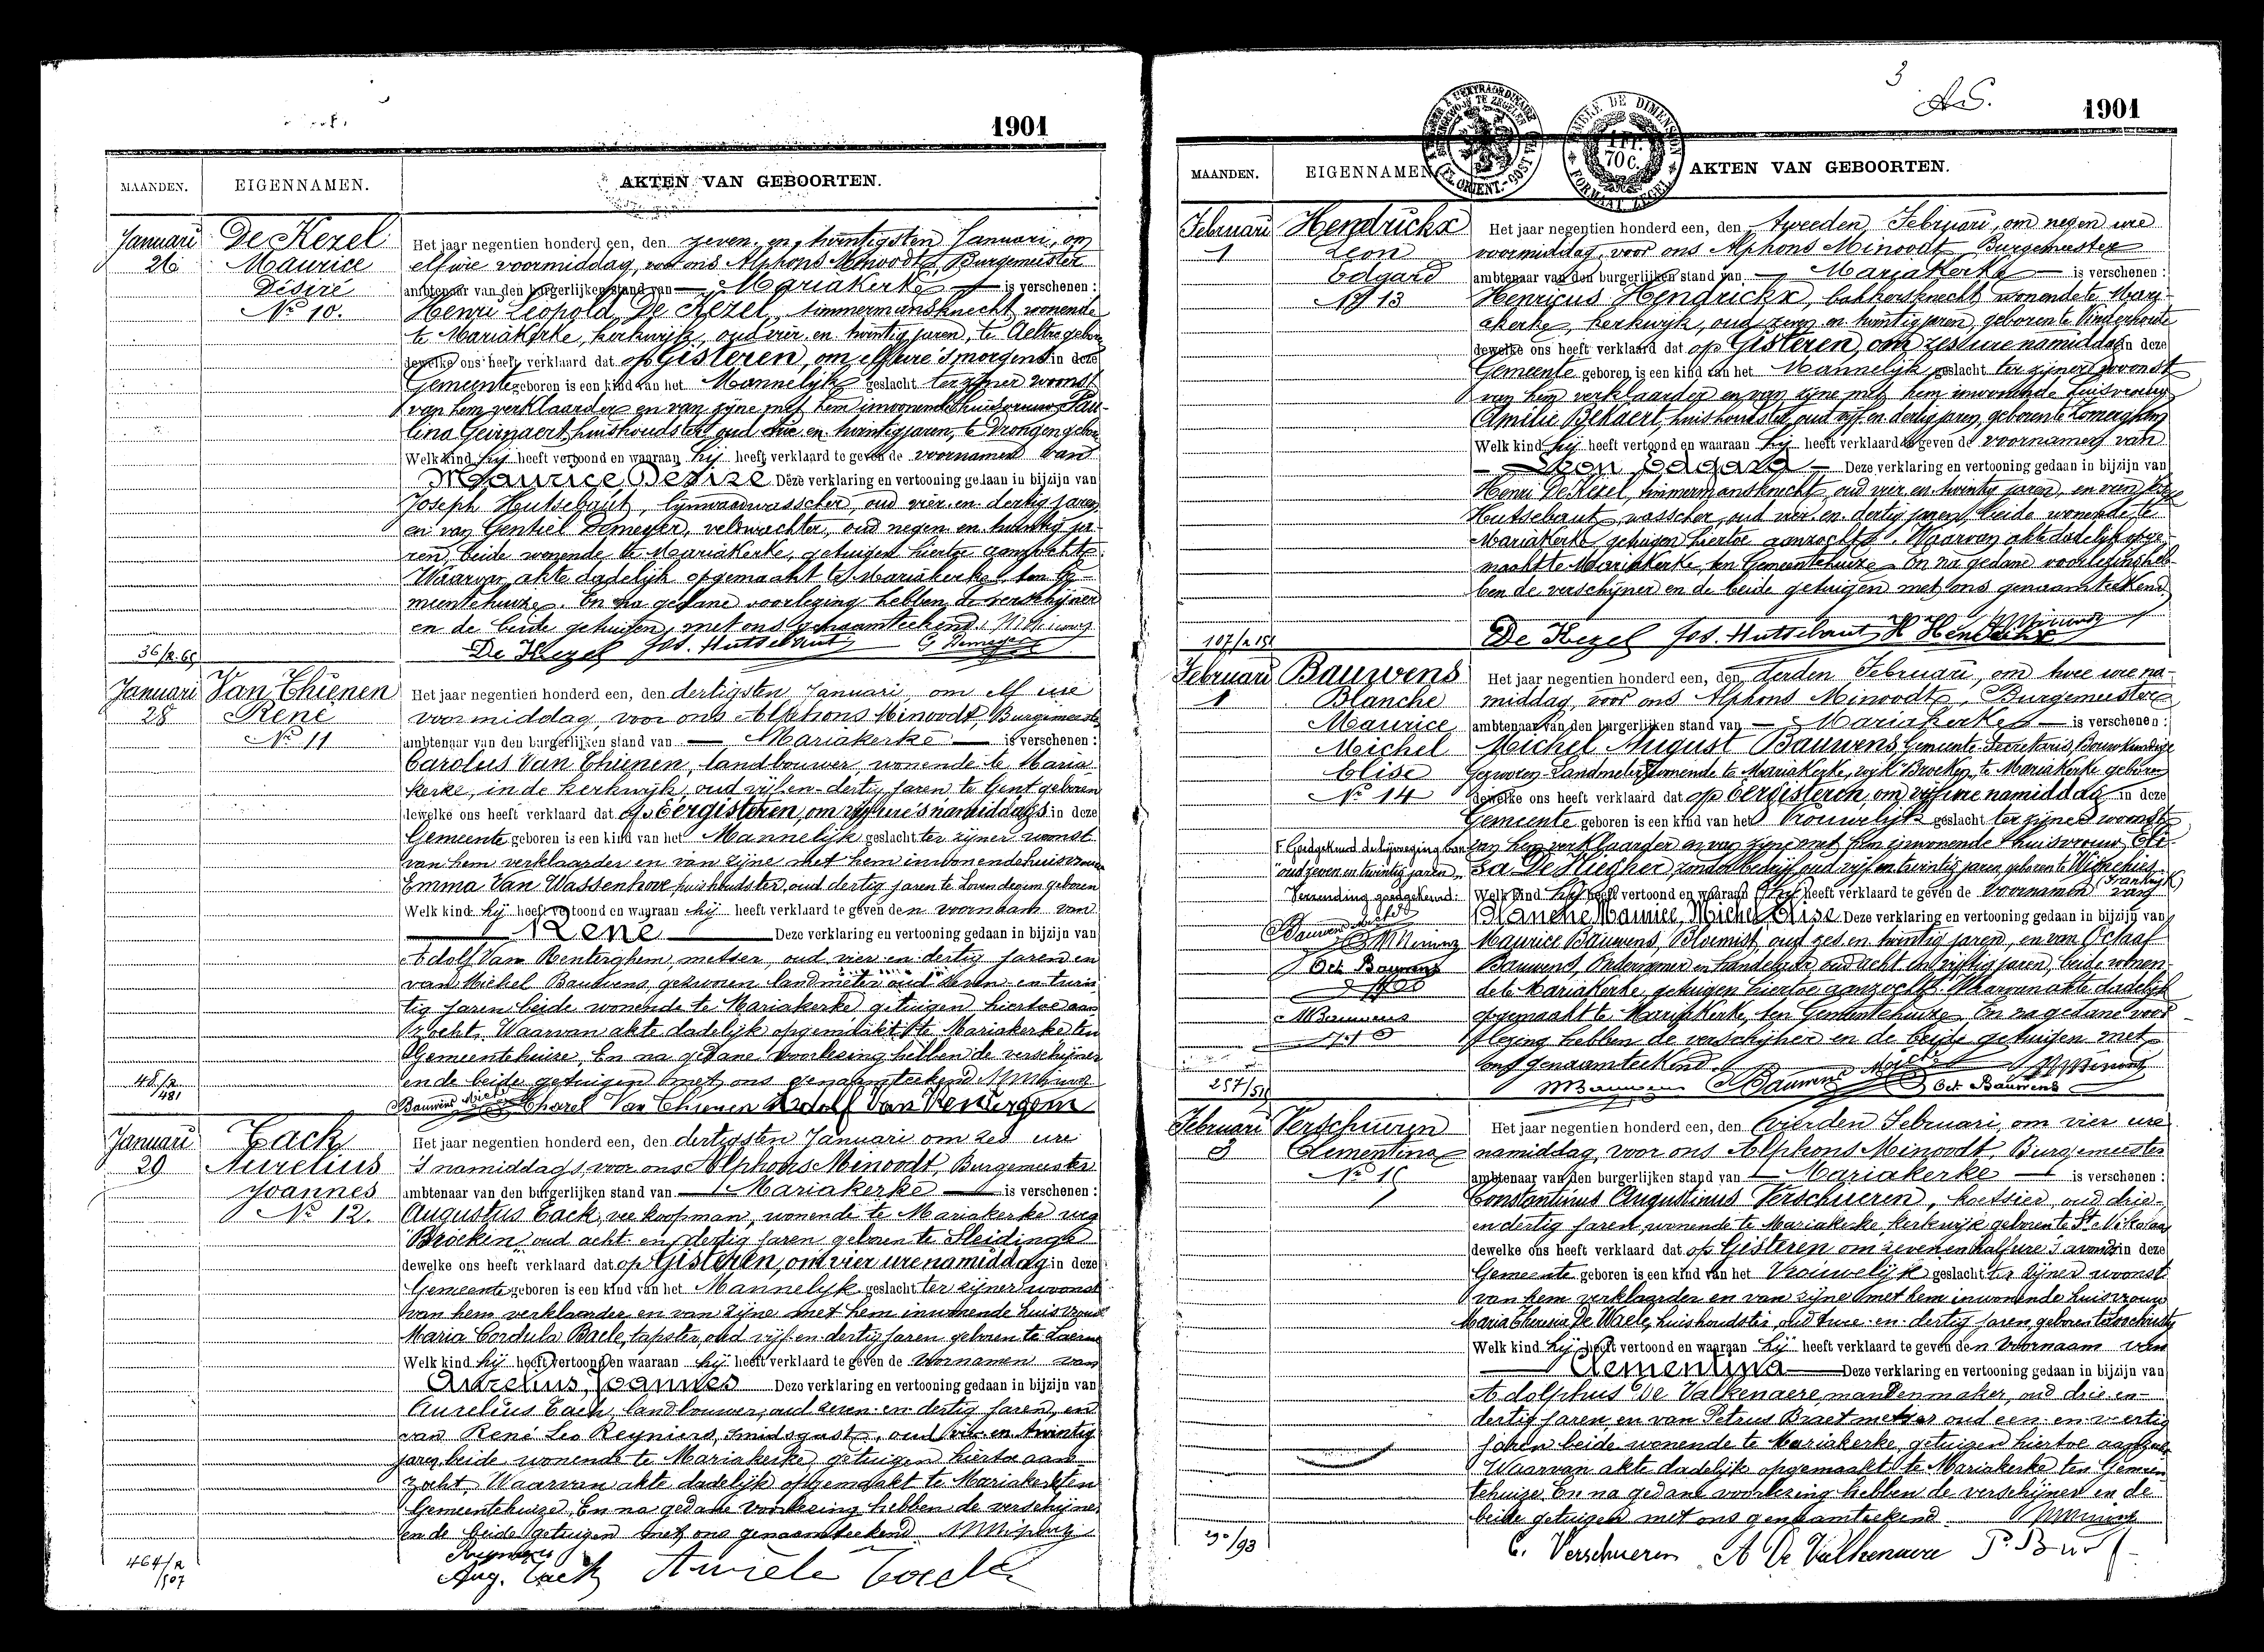 1901
MAANDEN. EIGENNAMEN. AKTEN VAN GEBOORTEN.
Januari De Kezel Het jaar negentien honderd een, den zeven en twintigsten Januari, om
26 Maurice elf ure voormiddag, voor ons Alphons Minoodt, Burgemeester
Désiré ambtenaar van den burgerlijken stand van — Mariakerke — is verschenen :
No 10. Henri Leopold De Kezel, timmermansknecht, wonende
te Mariakerke, kerkwijk, oud vier en twintig jaren, te Aeltre geboren
dewelke ons heeft verklaard dat op Gisteren, om elf ure 's morgens in deze
Gemeente geboren is een kind van het Mannelijk geslacht ter zijner woonst
van hem verklaarder en van zijne met hem inwonende huisvrouw Pau-
lina Geirnaert, huishoudster, oud en twintig jaren, te Drongen geboren
Welk kind hij heeft vertoond en waaraan hij heeft verklaard te geven de voornamen van
Maurice Désiré Deze verklaring en vertooning gedaan in bijzijn van
Joseph Hutsebaut, lijnwaadwasscher, oud vier en dertig jaren
en van Gentiel Demeyer, veldwachter, oud negen en twintig ja-
ren, beide wonende te Mariakerke, getuigen hiertoe aanzocht.
Waarvan akte dadelijk opgemaakt te Mariakerke, ten Ge-
meentehuize. En na gedane voorlezing hebben de verschijner
en de beide getuigen met ons genaamteekend.
36/R.69 De Kezel Jos. Hutsebaut G. Demeyer
Januari Van Thienen Het jaar negentien honderd een, den dertigsten Januari, om elf ure
28 René voormiddag, voor ons Alphons Minoodt, Burgemeester
No 11 ambtenaar van den burgerlijken stand van — Mariakerke — is verschenen :
Carolus Van Thienen, landbouwer wonende te Maria
kerke, in de kerkwijk, oud vijf en dertig jaren, te Gent geboren
dewelke ons heeft verklaard dat op Eergisteren, om vijf ure 's namiddags in deze
Gemeente geboren is een kind van het Mannelijk geslacht ter zijner woonst
van hem verklaarder en van zijne met hem inwonende huisvrouw
Emma Van Wassenhove, huishoudster, oud dertig jaren te Lovendegem geboren
Welk kind hij heeft vertoond en waaraan hij heeft verklaard te geven den voornaam van
René Deze verklaring en vertooning gedaan in bijzijn van
Adolf Van Renterghem, metser, oud vier en dertig jaren en
van Michel Bauwens, gezworen landmeter oud zeven en twin
tig jaren beide wonende te Mariakerke getuigen hiertoe aan
zocht. Waarvan akte dadelijk opgemaakt te Mariakerke ten
Gemeentehuize. En na gedane voorlezing hebben de verschijner
en de beide getuigen met ons genaamteekend
Bauwens Michel Charel Van Thienen Adolf Van Renterghem
Januari Cack Het jaar negentien honderd een, den dertigsten Januari om zes ure
29 Aurelius 's namiddags voor ons Alphons Minoodt, Burgemeester
Joannes ambtenaar van den burgerlijken stand van — Mariakerke — is verschenen :
No 12. Augustus Cack, veekoopman, wonende te Mariakerke wijk
Broekin oud acht en dertig jaren geboren te Sleidinge
dewelke ons heeft verklaard dat op Gisteren, om vier ure namiddag in deze
Gemeente geboren is een kind van het Mannelyk geslacht ter zijner woonst
van hem verklaarder en van zijne met hem inwonende huisvrouw
Maria Cordula Baele, tapster, oud vijf en dertig jaren geboren te Laerne
Welk kind hij heeft vertoond en waaraan hij heeft verklaard te geven de voornamen van
Aurelius, Joannes Deze verklaring en vertooning gedaan in bijzijn van
Aurelius Cack, landbouwer, oud zeven en dertig jaren, en
van René Leo Reyniers, smidsgast, oud en twintig
jaren beide wonende te Mariakerke getuigen hiertoe aan
zocht. Waarvan akte dadelijk opgemaakt te Mariakerke ten
Gemeentehuize. En na gedane voorlezing hebben de verschijner
en de beide getuigen met ons genaamteekend
Reyniers
464/R Aug. Cack Aurele Cack
507
3
1901
MAANDEN. EIGENNAMEN. AKTEN VAN GEBOORTEN.
Februari Hendrickx Het jaar negentien honderd een, den tweeden Februari, om negen ure
1 Leon voormiddag, voor ons Alphons Minoodt Burgemeester
Edgard ambtenaar van den burgerlijken stand van — Mariakerke — is verschenen :
No 13 Henricus Hendrickx, bakkersknecht wonende te Mari-
akerke, kerkwijk, oud zeven en twintig jaren, geboren te Vinderhoute
dewelke ons heeft verklaard dat op Gisteren, om zes ure namiddag in deze
Gemeente geboren is een kind van het Mannelijk geslacht ter zijner woonst
van hem verklaarder en van zijne met hem inwonende huisvrouw
Emilie Bekaert, huishoudster, oud vijf en dertig jaren, geboren te Zomergem
Welk kind hij heeft vertoond en waaraan hij heeft verklaard te geven de voornamen van
Leon Edgard Deze verklaring en vertooning gedaan in bijzijn van
Henri De Kezel, timmermansknecht, oud vier en twintig jaren, en van
Hutsebaut, wasscher, oud vier en dertig jaren, beide wonende te
Mariakerke getuigen hiertoe aanzocht. Waarvan akte dadelijk opge-
maakt te Mariakerke, ten Gemeentehuize. En na gedane voorlezing heb-
ben de verschijner en de beide getuigen met ons genaamteekend
De Kezel Jos. Hutsebaut H Hendrickx
Februari Bauwens Het jaar negentien honderd een, den derden Februari, om twee ure na-
1 Blanche middag, voor ons Alphons Minoodt, Burgemeester
Maurice ambtenaar van den burgerlijken stand van — Mariakerke — is verschenen :
Michel Michel August Bauwens, Gemeente-Secretaris, Bouwkundige
Elise Gezworen Landmeter, wonende te Mariakerke, wijk Broeken, te Mariakerke geboren
No 14 dewelke ons heeft verklaard dat op Eergisteren, om vijf ure namiddag in deze
Gemeente geboren is een kind van het Vrouwelijk geslacht ter zijner woonst
Goedgekeurd de bijvoeging van van hem verklaarder en van zijne met hem inwonende huisvrouw Eli-
oud zeven en twintig jaren sa De Clugher, zonder bedrijf, oud vijf en twintig jaren geboren te Wignehies
(Frankrijk)
Verzending goedgekeurd: Welk kind hij heeft vertoond en waaraan hij heeft verklaard te geven de voornamen van
Blanche, Maurice, Michel, Elise Deze verklaring en vertooning gedaan in bijzijn van
Bauwens Maurice Bauwens, Bloemist, oud zes en twintig jaren, en van Octaaf
Oct. Bauwens Bauwens, Ondernemer en Handelaar, oud acht en vijftig jaren, beide wonen-
de te Mariakerke, getuigen hiertoe aanzocht. Waarvan akte dadelijk
M Bauwens opgemaakt te Mariakerke, ten Gemeentehuize. En na gedane voor-
lezing hebben de verschijner en de beide getuigen met
ons genaamteekend.
M Bauwens Bauwens Michel Oct. Bauwens
Februari Verschueren Het jaar negentien honderd een, den vierden Februari, om vier ure
3 Clementina namiddag, voor ons Alphons Minoodt, Burgemeester
No 15 ambtenaar van den burgerlijken stand van — Mariakerke — is verschenen :
Constantinus Augustinus Verschueren, koetsier, oud drie-
en dertig jaren, wonende te Mariakerke, kerkwijk geboren te St. Nikolaas
dewelke ons heeft verklaard dat op Gisteren om zeven en half ure 's avonds in deze
Gemeente geboren is een kind van het Vrouwelijk geslacht ter zijner woonst
van hem verklaarder en van zijne met hem inwonende huisvrouw
Maria Theresia De Waele, huishoudster, oud twee en dertig jaren, geboren
Welk kind hij heeft vertoond en waaraan hij heeft verklaard te geven den voornaam van
Clementina Deze verklaring en vertooning gedaan in bijzijn van
Adolphus De Valkenaere, mandenmaker, oud drie en-
dertig jaren, en van Petrus Braet metser oud een en veertig
jaren beide wonende te Mariakerke, getuigen hiertoe aanzocht
Waarvan akte dadelijk opgemaakt te Mariakerke ten Gemeen
tehuize. En na gedane voorlezing hebben de verschijner en de
beide getuigen met ons genaamteekend
C. Verschueren A De Valkenaere